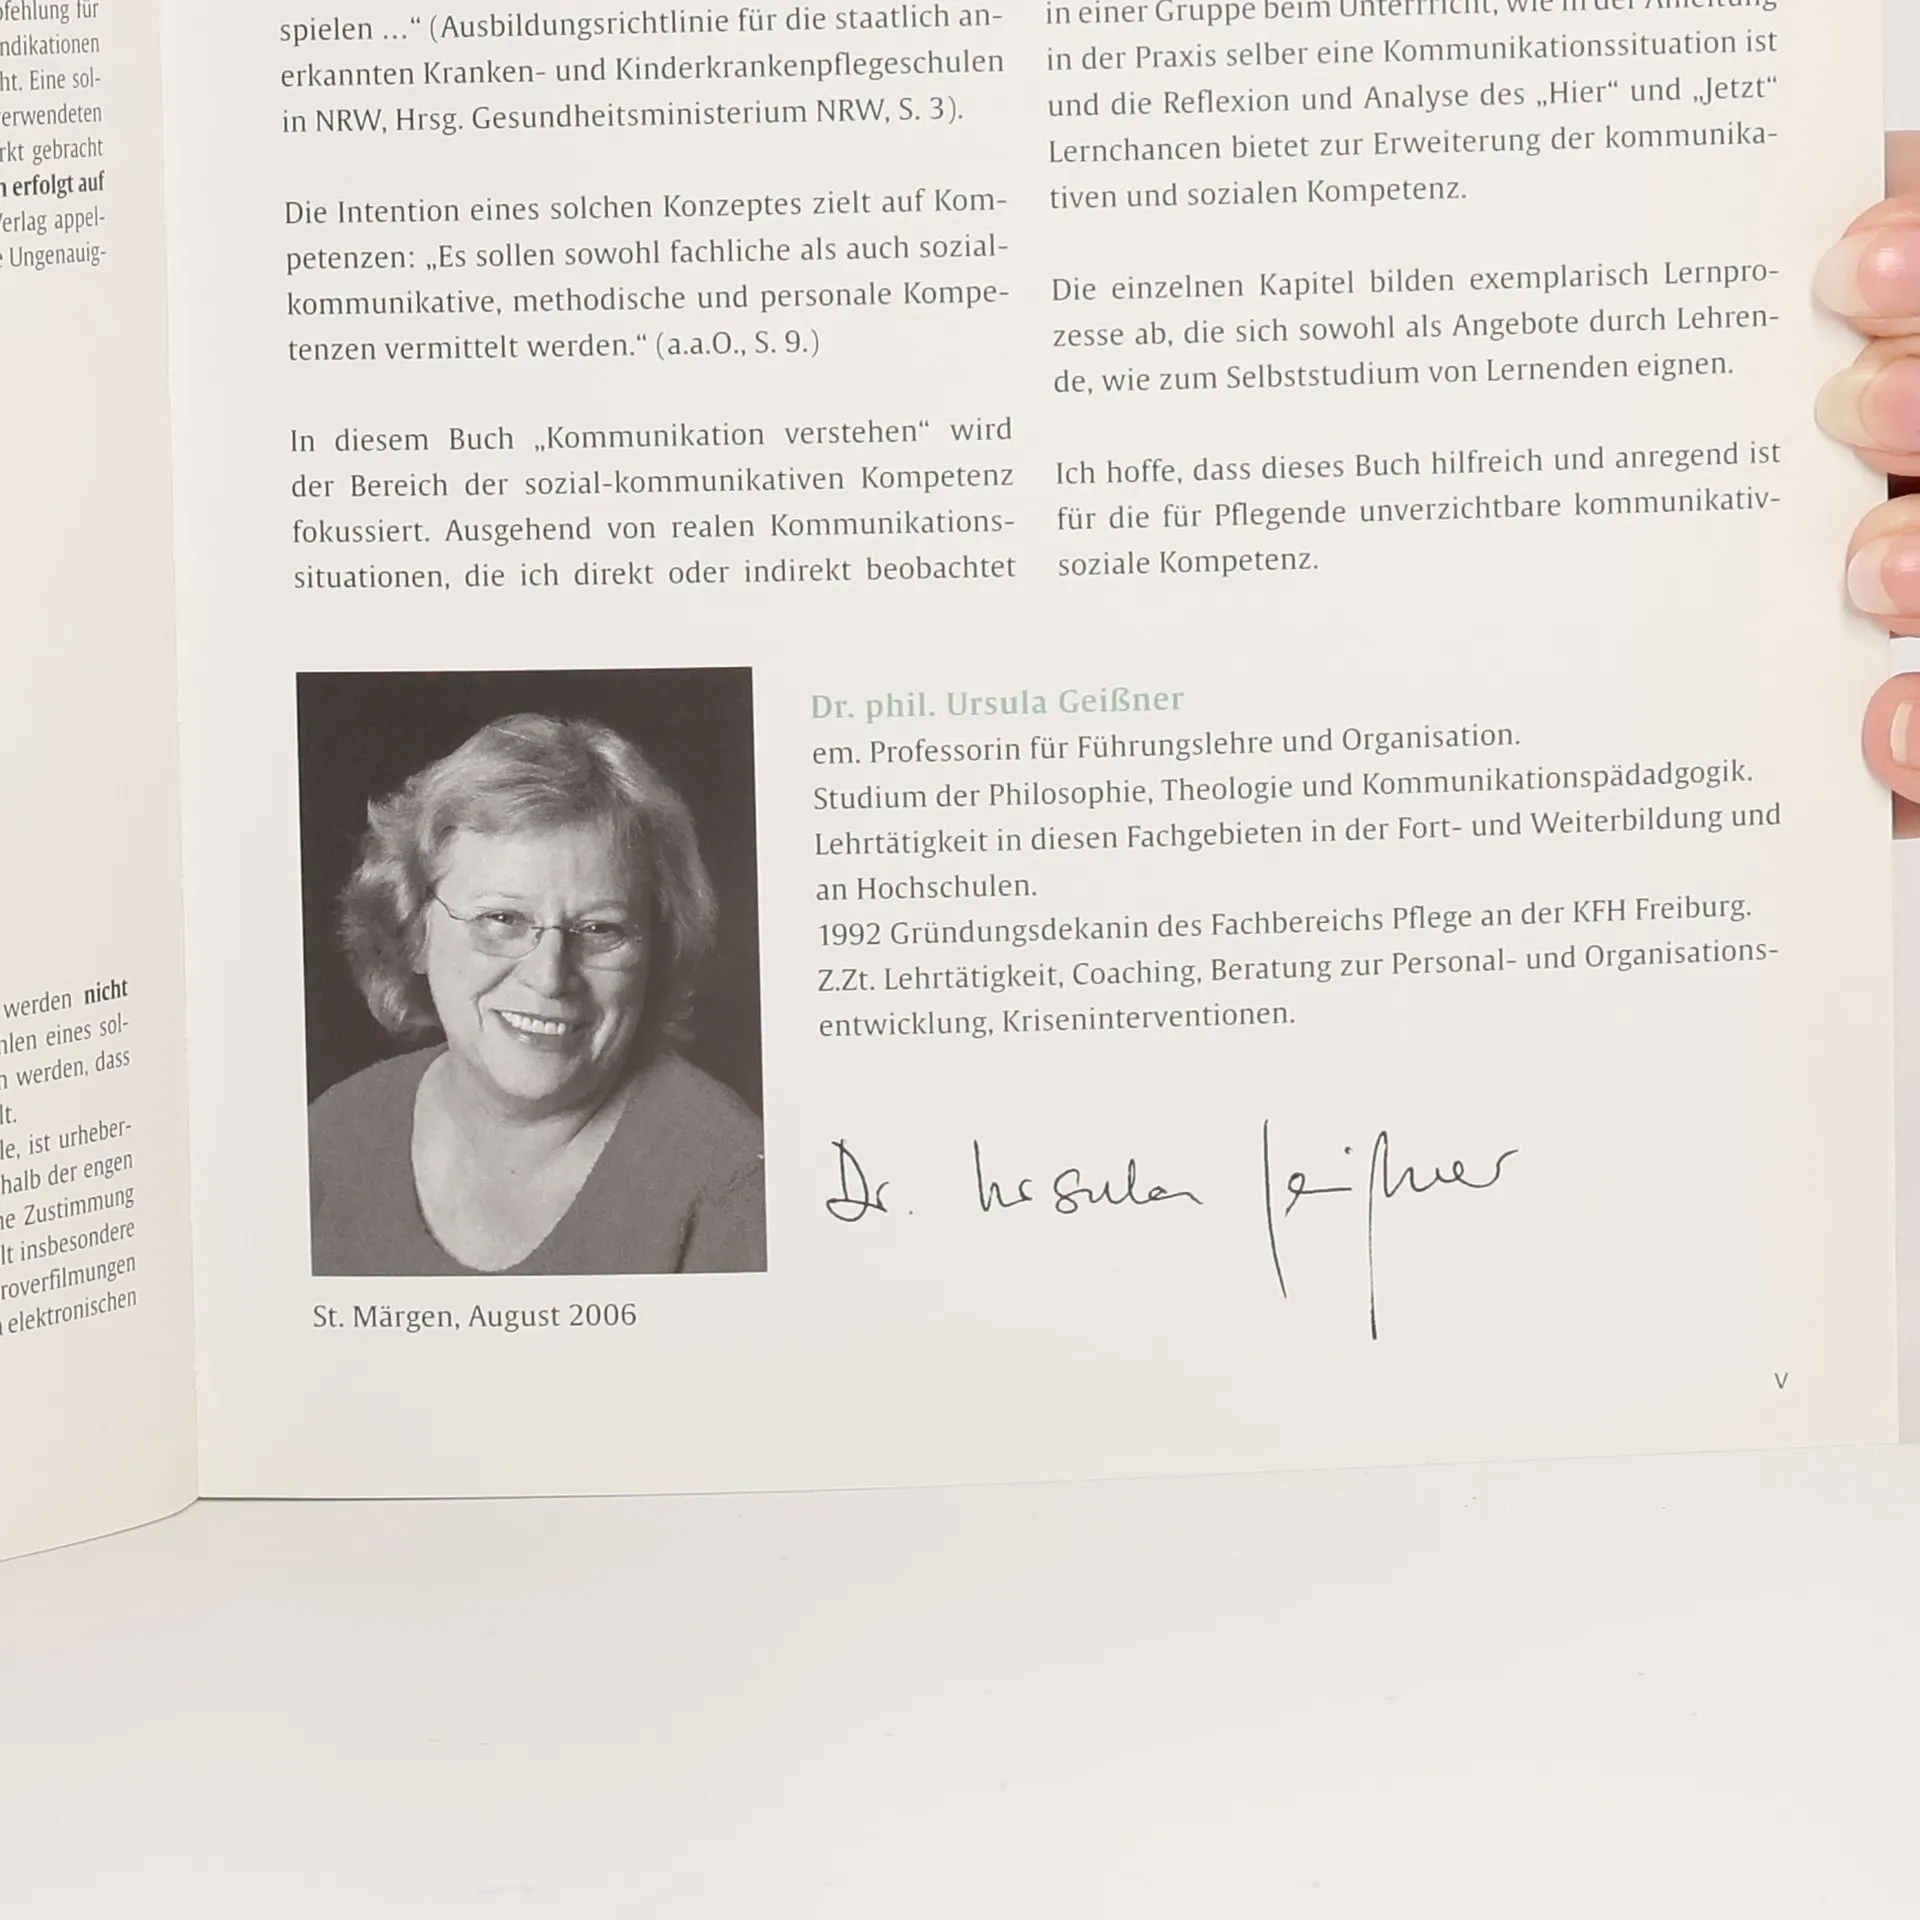 für
ndikationen
ht. Eine sol-
erwendeten
rkt gebracht
erfolgt auf
Verlag appel-
Ungenauig-
werden nicht
hlen eines sol-
werden, dass
lt.
le, ist urheber-
halb der engen
ne Zustimmung
lt insbesondere
roverfilmungen
elektronischen
spielen ...“ (Ausbildungsrichtlinie für die staatlich an-
erkannten Kranken- und Kinderkrankenpflegeschulen
in NRW, Hrsg. Gesundheitsministerium NRW, S. 3).
Die Intention eines solchen Konzeptes zielt auf Kom-
petenzen: „Es sollen sowohl fachliche als auch sozial-
kommunikative, methodische und personale Kompe-
tenzen vermittelt werden.“ (a.a.O., S. 9.)
In diesem Buch „Kommunikation verstehen“ wird
der Bereich der sozial-kommunikativen Kompetenz
fokussiert. Ausgehend von realen Kommunikations-
situationen, die ich direkt oder indirekt beobachtet
in einer Gruppe beim Unterrricht, wie in der Anleitung
in der Praxis selber eine Kommunikationssituation ist
und die Reflexion und Analyse des „Hier“ und „Jetzt“
Lernchancen bietet zur Erweiterung der kommunika-
tiven und sozialen Kompetenz.
Die einzelnen Kapitel bilden exemplarisch Lernpro-
zesse ab, die sich sowohl als Angebote durch Lehren-
de, wie zum Selbststudium von Lernenden eignen.
Ich hoffe, dass dieses Buch hilfreich und anregend ist
für die für Pflegende unverzichtbare kommunikativ-
soziale Kompetenz.
Dr. phil. Ursula Geißner
em. Professorin für Führungslehre und Organisation.
Studium der Philosophie, Theologie und Kommunikationspädadgogik.
Lehrtätigkeit in diesen Fachgebieten in der Fort- und Weiterbildung und
an Hochschulen.
1992 Gründungsdekanin des Fachbereichs Pflege an der KFH Freiburg.
Z.Zt. Lehrtätigkeit, Coaching, Beratung zur Personal- und Organisations-
entwicklung, Kriseninterventionen.
Dr. Ursula Geißner
St. Märgen, August 2006
V